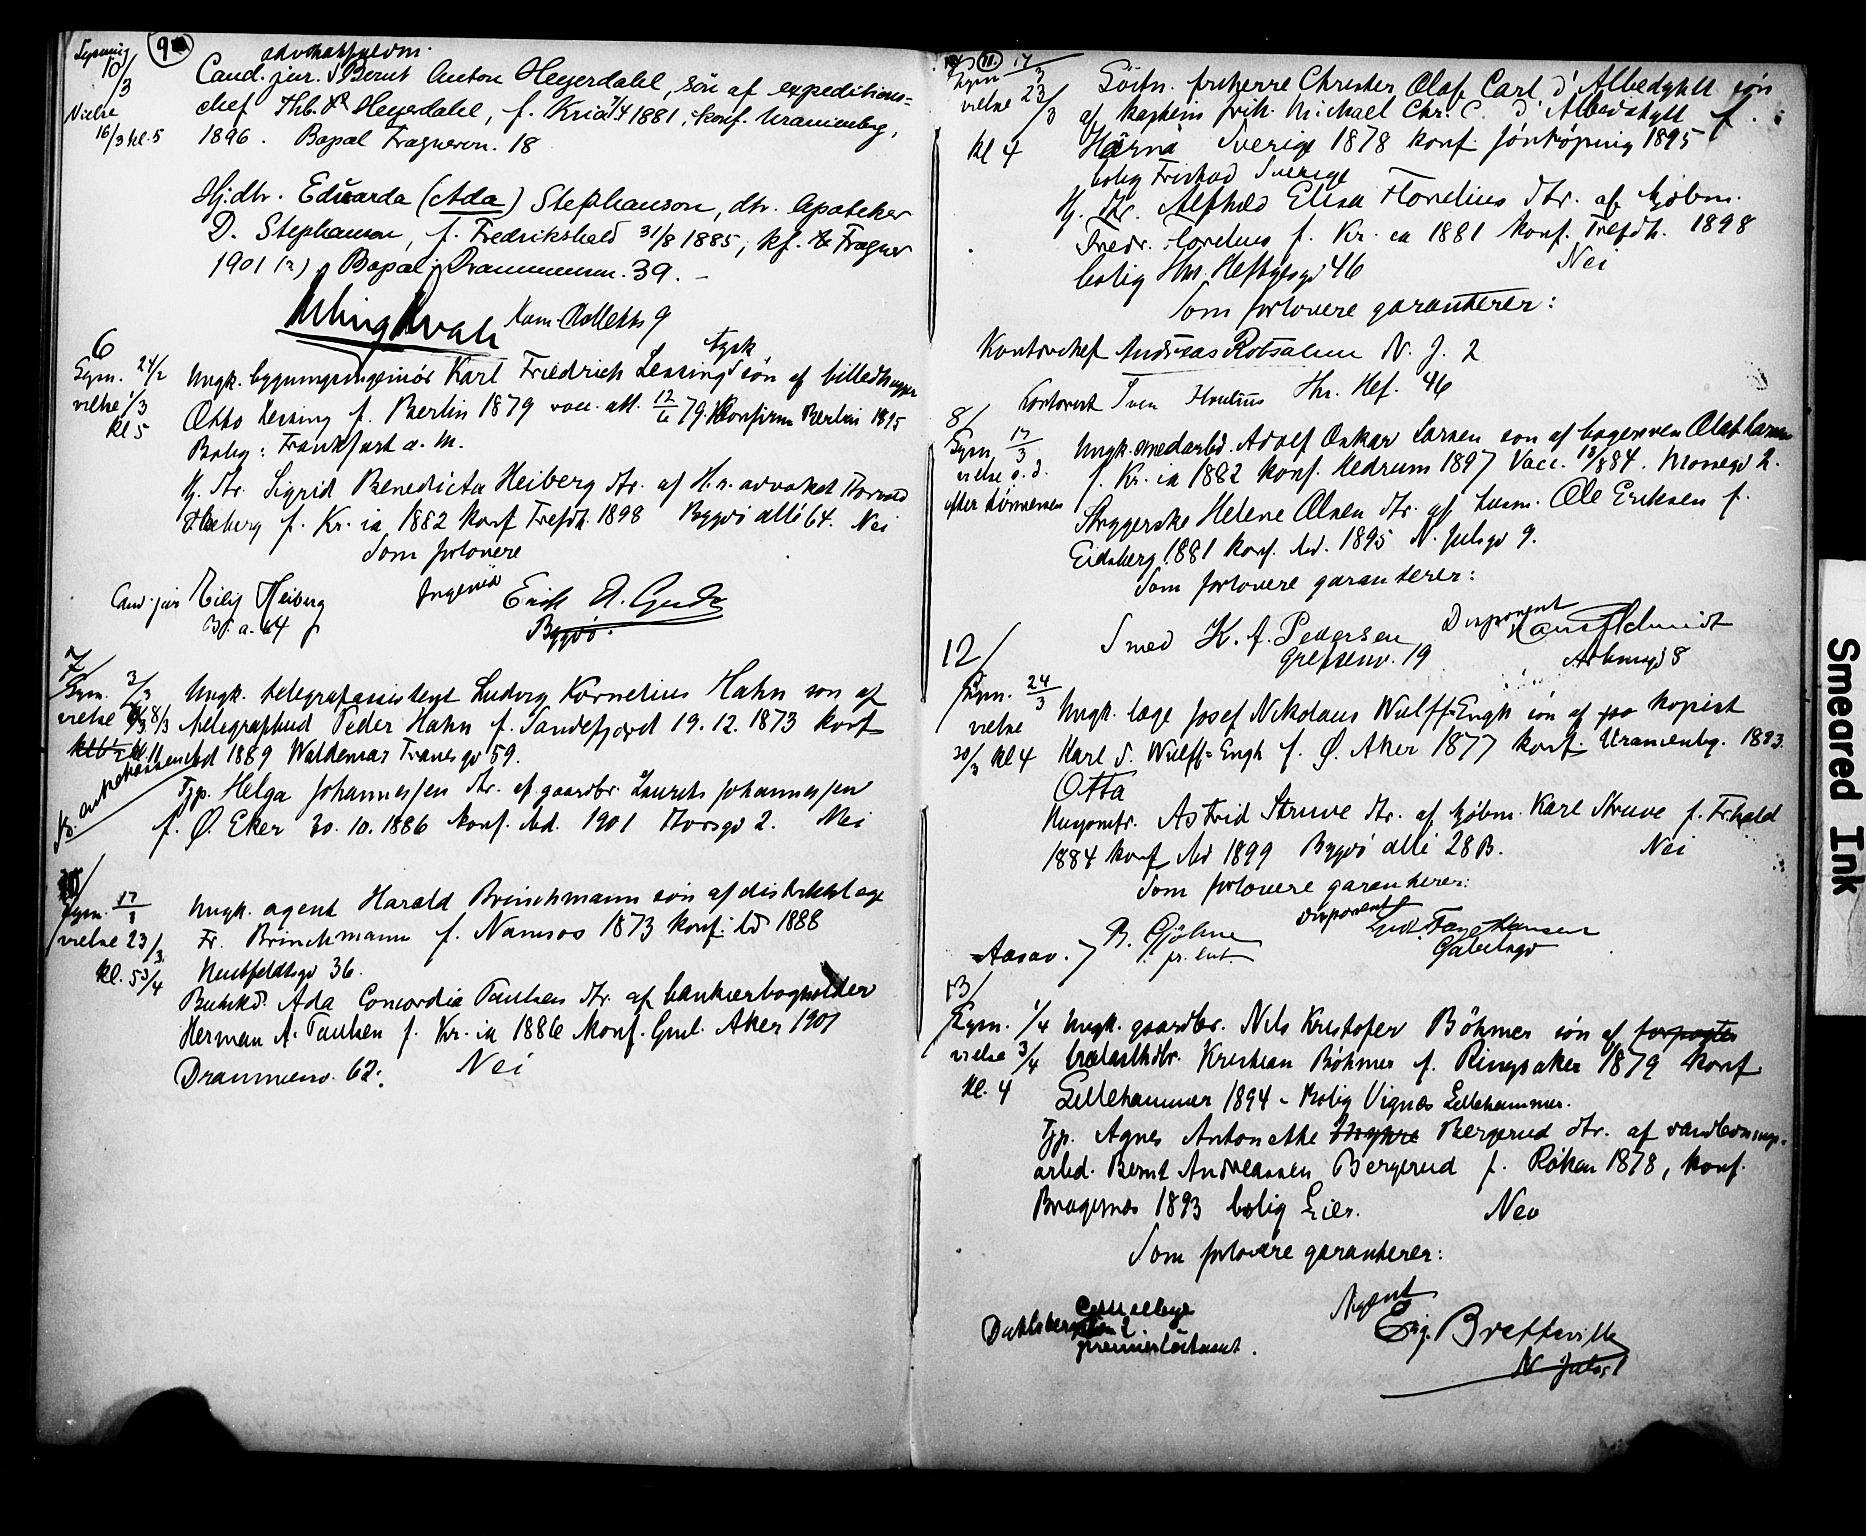 Lysning
10/3
Vielse
16/3 kl. 5
9
advokatfuldm.
Cand. jur. Bernt Anton Heyerdahl, søn af expeditions-
chef Thb. Heyerdahl, f. Kria 7/4 1881, konf. Uranienborg,
1896. Bopæl Fragnervn. 18
Hj.dtr. Edvarda (Ada) Stephanson, dtr. Apoteker
D. Stephanson, f. Fredrikshald 31/8 1885, kf. Fragner
1901 (?) Bopæl Drammensvn. 39.
Kam. Colletts 9
6
Lysn. 24/2
vielse 1/3
kl 5
Ungk. bygningsingeniør Karl Friedrich Lessing tysk søn af billedhugger
Otto Lessing f. Berlin 1879 vacc. att. 12/6 79. Konfirm Berlin 1895
Bolig: Frankfurt a. M.
Hj. dtr. Sigrid Benedicta Heiberg dtr. af H.r. advokat
Heiberg f. Kr.ia 1882 konf Trefdh. 1898 Bygdø allé 64. Nei
Som forlovere
Cand. jur Eilif Heiberg
B. a. 64
Ingeniør Erich
Bygdø.
7
Lysn. 2/3
vielse 8/3
kl 11
Ungk. telegrafassistent Ludvig Kornelius Hahn søn af
telegrafbud Peder Hahn f. Sandefjord 19. 12. 1873 konf
sted 1889 Waldemar Tranes gd 59.
Pp. Helga Johannessen dtr. af gaardbr. Laurits Johannessen
f. Ø. Eker 30. 10. 1886 konf. sted. 1901 Thorsgd 2. Nei
10
Lysn. 17/3
vielse 23/3
kl. 5 3/4
Ungk. agent Harald Brinchmann søn af distriktslæge
Fr. Brinchmann f. Namsos 1873 konf. sd 1888
Neubfeldtsgd 36.
Ada Concordia Paulsen dtr. af bankierbogholder
Herman A. Paulsen f. Kr.ia 1886 konf. Gml. Aker 1901
Drammensv. 62. Nei
11
Lysn 17/3
vielse 23/3
kl 4
Löitn. friherre Christer Olof Carl d'Albedyhll søn
af kaptein frih. Michael Chr. C. d'Albedyhll f.
Härna Sverige 1878 konf. Jönköping 1895
bolig Fristad Sverige
Hj. dtr. Alfhild Elisa Florelius dtr. af kjøbm.
Fredr. Florelius f. Kr. ia 1881 konf. Trefdh. 1898
bolig Thr. Heftyesgd 46 Nei
Som forlovere garanterer:
Kontorchef Andreas Rotsahm N. J. 2
Kontorist Sven Florelius Thr. Hef. 46
8
Lysn. 17/3
vielse s. d.
efter höimessen
Ungk. smedarbd. Adolf Oskar Larsen søn af bagersven Olaf Larsen
f. Kr. ia 1882 konf. Hedrum 1897 Vacc. 18/8 84. Mossegd 2.
Strygerske Helene Olsen dtr. af husm. Ole Eriksen f.
Eidsberg 1881 konf. sd. 1895 N. Julsgd 9.
Som forlovere garanterer:
Smed K. A. Pedersen
Grefsenv. 19
Disponent Hans Schmidt
8
12
Lysn. 24/3
vielse
30/3 kl 4
Ungk. læge Josef Nikolaus Wulff-Engh søn af kopist
Karl S. Wulff-Engh f. Ø. Aker 1877 konf. Uranienbg. 1893.
Otta
Husjomfr. Astrid Struve dtr. af kjøbm. Karl Struve f. Fr.hald
1884 konf sted 1899 Bygdø allé 28 B. Nei
Som forlovere garanterer:
B. Gjölme
pr. lut.
disponent Lud. Faye Hansen
Gabelsgd
13
Lysn. 1/4
vielse 3/4
kl. 4
Ungk. gaardbr. Nils Kristofer Böhmer søn af forpagter
trælasthdlr. Kristian Böhmer f. Ringsaker 1879 konf.
Lillehammer 1894 - Bolig Vignæs Lillehammer.
Pp. Agnes Antonette Myhre Bergerud dtr. af vandlednings-
arbd. Bernt Andreassen Bergerud f. Røken 1878, konf.
Bragernes 1893 bolig Lier. Nei
Som forlovere garanterer:
premierløitnant.
Agent
Eug. Bretteville
N. Julsg 1
Smeared Ink